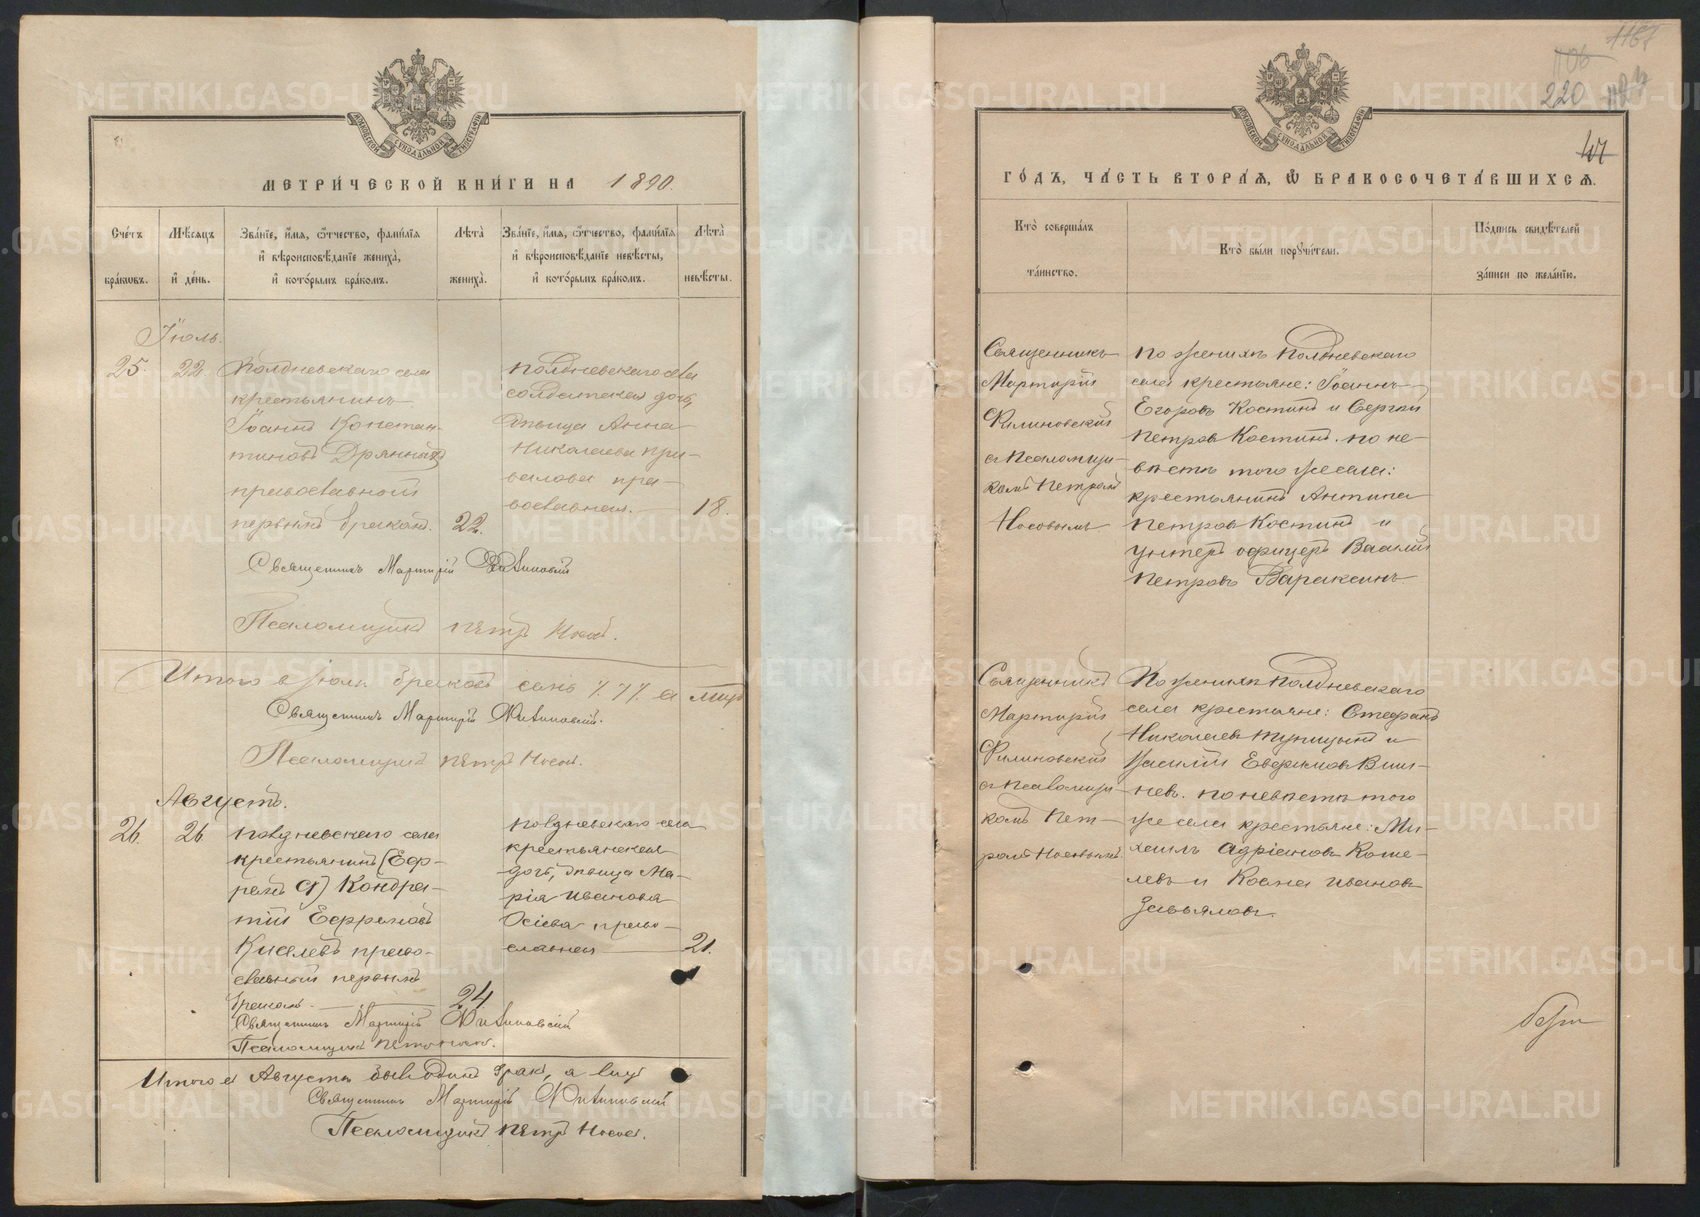 МЕТРИЧЕСКОЙ КНИГИ НА 1890.
Счетъ браковъ.
Мѣсяцъ и день.
Званіе, имя, отчество, фамилія
и вѣроисповѣданіе жениха,
и которымъ бракомъ.
Лѣта
жениха.
Званіе, имя, отчество, фамилія
и вѣроисповѣданіе невѣсты,
и которымъ бракомъ.
Лѣта
невѣсты.
Іюль.
25. 22
Полдневскаго села
крестьянинъ
Іоаннъ Констан-
тиновъ
православный
первымъ бракомъ. 22.
Полдневскаго села
солдатская дочь,
дѣвица Анна
Николаева При-
валова пра-
вославная. 18.
Священникъ Мартирій Филиновскій
Псаломщикъ Петръ Носовъ.
Итого в Іюлѣ браковъ семь /7/. а лицъ
Священникъ Мартирій Филиновскій.
Псаломщикъ Петръ Носовъ.
Августъ.
26. 26
Полдневскаго села
крестьянинъ (Еф-
ремъ) Кондра-
тій Ефремовъ
Киселевъ право-
славный первымъ
бракомъ. 24
Полдневскаго села
крестьянская
дочь, дѣвица Ма-
рія Иванова
право-
славная 21.
Священникъ Мартирій Филиновскій
Псаломщикъ Петръ Носовъ.
Итого въ Августѣ былъ одинъ бракъ, а лицъ
Священникъ Мартирій Филиновскій
Псаломщикъ Петръ Носовъ.
220
ГОДЪ, ЧАСТЬ ВТОРАЯ, Ѡ БРАКОСОЧЕТАВШИХСЯ.
Кто совершалъ
таинство.
Кто были поручители.
Подпись свидѣтелей
записи по желанію.
Священникъ
Мартирій
Филиновскій
с псаломщи-
комъ Петромъ
Носовымъ
по женихѣ Полдневскаго
села крестьяне: Іоаннъ
Егоровъ Костинъ и Сергѣй
Петровъ Костинъ. по не-
вѣстѣ того же села:
крестьянинъ Антипа
Петровъ Костинъ и
унтеръ офицеръ Василій
Петровъ Вараксинъ
Священникъ
Мартирій
Филиновскій
с псаломщи-
комъ Пет-
ромъ Носовымъ
По женихѣ Полдневскаго
села крестьяне: Стефанъ
Николаевъ и
Василій Ефремовъ
по невѣстѣ того
же села крестьяне: Ми-
хаилъ Адріановъ Коше-
левъ и Косма Ивановъ
Завьяловъ
METRIKI.GASO-URAL.RU